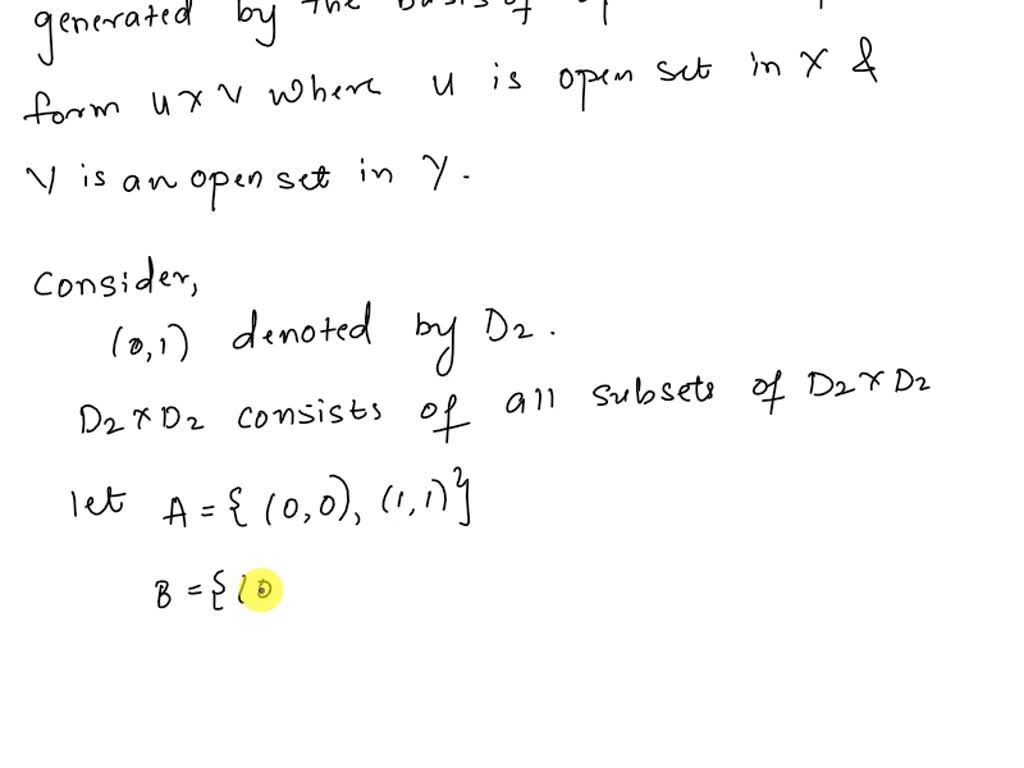 generated by the basis of
form U x V where U is open set in X &
V is an open set in Y.
Consider,
(0,1) denoted by D2.
D2 x D2 consists of all subsets of D2 x D2
let A = { (0,0), (1,1)}
B = { (0